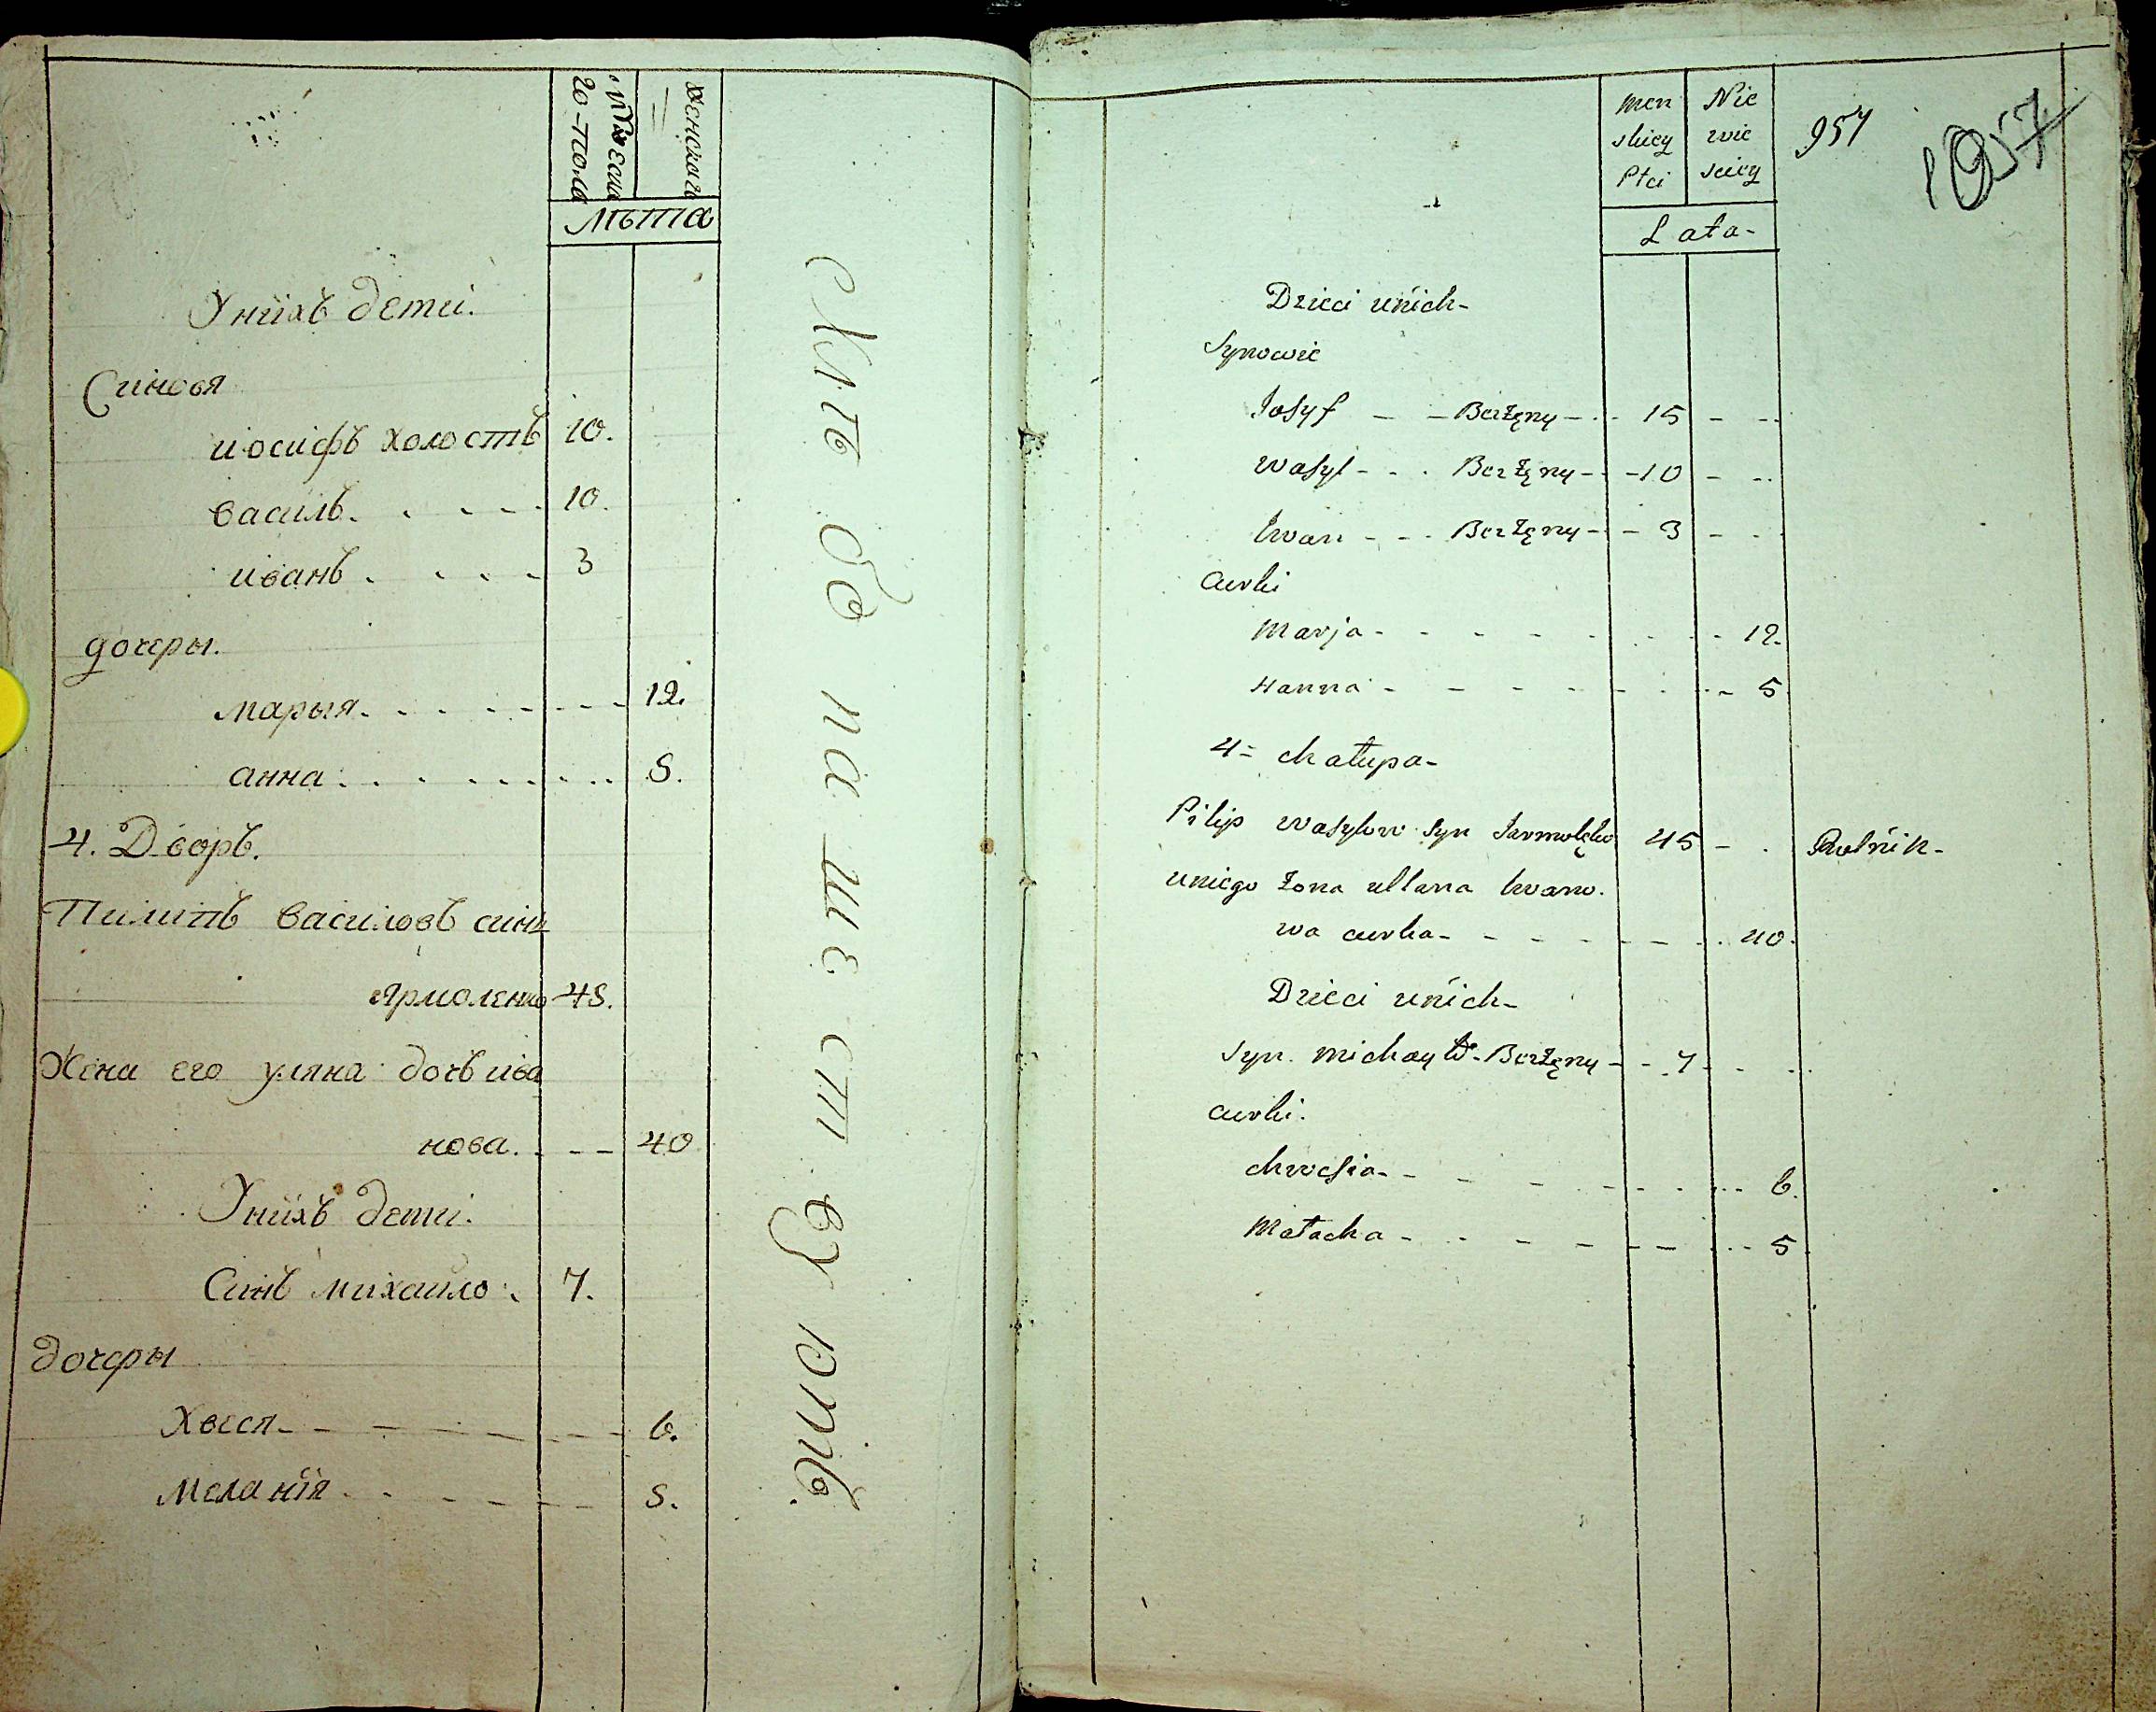 женскаго
Мужеска
го пола
лѣта
У нихъ дети.
Синовя
иосифъ холостъ 10.
василь. 10.
иванъ. 3
дочеры.
марыя. 12.
анна. 5.
4. Дворъ.
Пилипъ василовъ синъ
Ярмоленко 45.
Жена его уляна дочъ ива
нова. 40
У нихъ дети.
Синъ михаило. 7.
дочеры
Хвеся 6.
Меланія 5.
men Nie
skiey wie
Płci sciey
Lata-
957
1957
Dzieci unich-
Synowie
Iosyf - - Bezżęny - 15
Wasyl - - Bezżęny - 10
Iwan - - Bezżęny - 3
Curki
Marja - 12.
Hanna - 5
4= chałupa-
Pilip Wasylow Syn Iarmolęko 45 Rolnik-
uniego żona ullana Iwano.
wa curka - 40.
Dzieci unich-
Syn. michayło - Bezżęny - 7
Curki.
chwesia - 6.
Małacha - 5